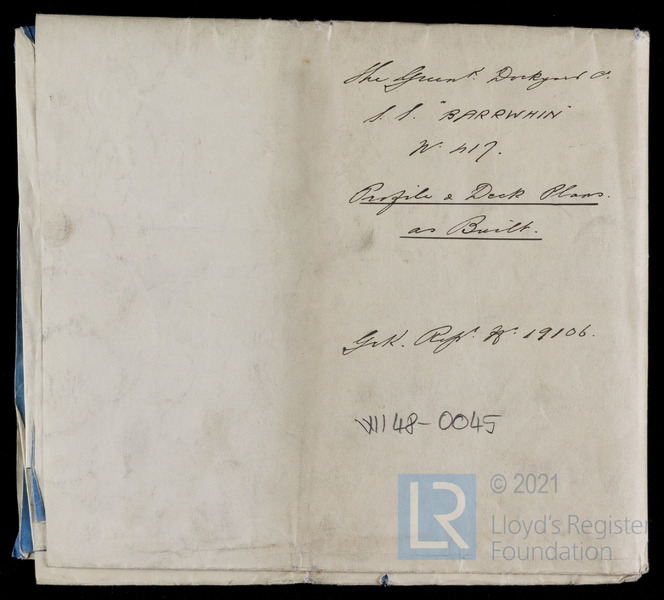 The Greenk. Dockyard Co.
S.S. "BARRWHIN"
No. 417.
Profile & Deck Plans.
as Built.
Grk. Rept. No. 19106.
W1148-0045
LR
© 2021
Lloyd's Register
Foundation